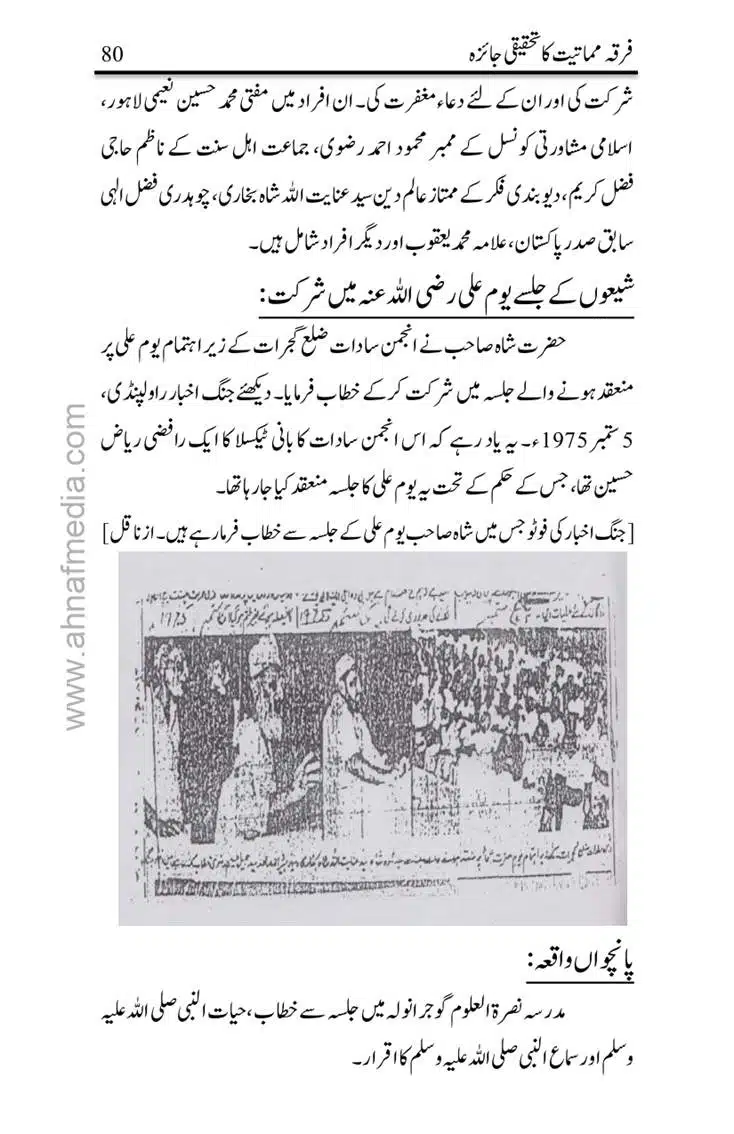 فرقہ مماتیت کا تحقیقی جائزہ 80
شرکت کی اور ان کے لئے دعاء مغفرت کی۔ ان افراد میں مفتی محمد حسین نعیمی لاہور،
اسلامی مشاورتی کونسل کے ممبر محمود احمد رضوی، جماعت اہل سنت کے ناظم حاجی
فضل کریم، دیوبندی فکر کے ممتاز عالم دین سید عنایت اللہ شاہ بخاری، چوہدری فضل الہی
سابق صدر پاکستان، علامہ محمد یعقوب اور دیگر افراد شامل ہیں۔
شیعوں کے جلسے یوم علی رضی اللہ عنہ میں شرکت:
حضرت شاہ صاحب نے انجمن سادات ضلع گجرات کے زیر اہتمام یوم علی پر
منعقد ہونے والے جلسہ میں شرکت کر کے خطاب فرمایا۔ دیکھئے جنگ اخبار راولپنڈی،
5 ستمبر 1975ء۔ یہ یاد رہے کہ اس انجمن سادات کا بانی ٹیکسلا کا ایک رافضی ریاض
حسین تھا، جس کے حکم کے تحت یہ یوم علی کا جلسہ منعقد کیا جا رہا تھا۔
[جنگ اخبار کی فوٹو جس میں شاہ صاحب یوم علی کے جلسہ سے خطاب فرما رہے ہیں۔ از ناقل]
پانچواں واقعہ:
مدرسہ نصرۃ العلوم گوجرانولہ میں جلسہ سے خطاب، حیات النبی صلی اللہ علیہ
وسلم اور سماع النبی صلی اللہ علیہ وسلم کا اقرار۔
www.ahnafmedia.com